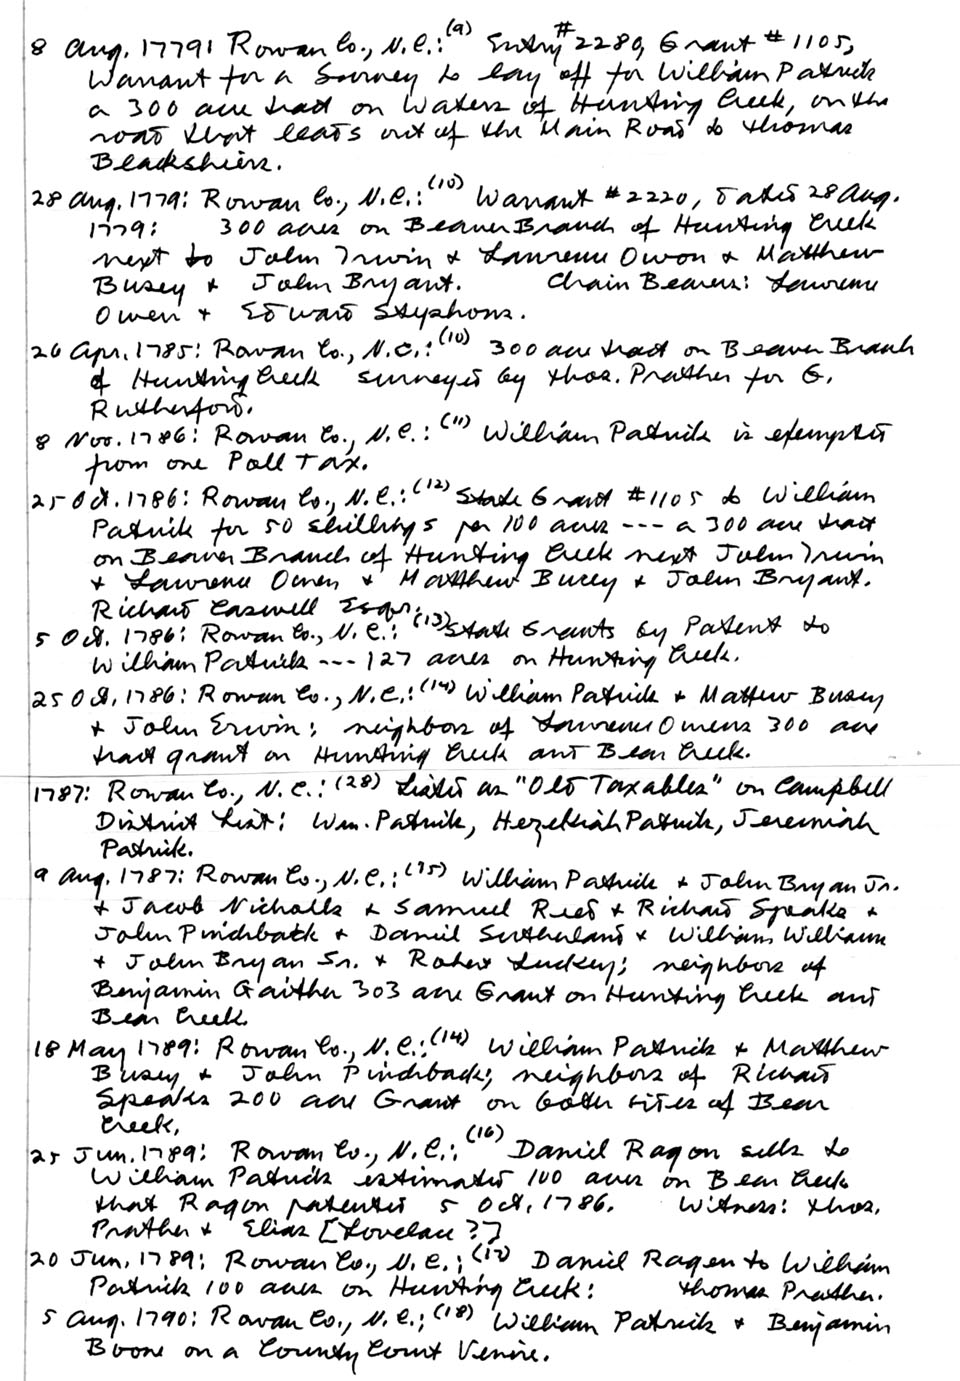 8 Aug. 1779: Rowan Co., N.C.: (9) Entry #2280, Grant #1105,
Warrant for a Survey to lay off for William Patrick
a 300 acre tract on Waters of Hunting Creek, on the
road that leads out of the Main Road to Thomas
Blackshiers.
28 Aug. 1779: Rowan Co., N.C.: (10) Warrant #2220, dated 28 Aug.
1779: 300 acres on Beaver Branch of Hunting Creek
next to John Irwin + Lawrence Owen + Matthew
Busey + John Bryant. Chain Bearers: Lawrence
Owen + Edward Styphons.
26 Apr. 1785: Rowan Co., N.C.: (10) 300 acre tract on Beaver Branch
of Hunting Creek surveyed by Thos. Prather for G.
Rutherford.
8 Nov. 1786: Rowan Co., N.C.: (11) William Patrick is exempted
from one Poll Tax.
25 Oct. 1786: Rowan Co., N.C.: (12) State Grant #1105 to William
Patrick for 50 shillings per 100 acres --- a 300 acre tract
on Beaver Branch of Hunting Creek next John Irwin
+ Lawrence Owen + Matthew Bucey + John Bryant.
Richard Caswell Esqr.
5 Oct. 1786: Rowan Co., N.C.: (13) State Grants by Patent to
William Patrick --- 127 acres on Hunting Creek.
25 Oct. 1786: Rowan Co., N.C.: (14) William Patrick + Mattew Busey
+ John Erwin; neighbors of Lawrence Owens 300 acre
tract grant on Hunting Creek and Bear Creek.
1787: Rowan Co., N.C.: (28) Listed as "Old Taxables" on Campbell
District List: Wm. Patrick, Hezekiah Patrick, Jeremiah
Patrick.
9 Aug. 1787: Rowan Co., N.C.: (15) William Patrick + John Bryan Jr.
+ Jacob Nicholls + Samuel Reed + Richard Speaks +
John Pinchback + Daniel Sutherland + William Williams
+ John Bryan Sr. + Robert Luckey; neighbors of
Benjamin Gaither 303 acre Grant on Hunting Creek and
Bear Creek.
18 May 1789: Rowan Co., N.C.: (14) William Patrick + Matthew
Busey + John Pinchback; neighbors of Richard
Speaks 200 acre Grant on both sides of Bear
Creek.
25 Jun. 1789: Rowan Co., N.C.: (16) Daniel Ragon sells to
William Patrick estimated 100 acres on Bear Creek
that Ragon patented 5 Oct. 1786. Witness: Thos.
Prather + Elias [Lovelace ??]
20 Jun. 1789: Rowan Co., N.C.: (17) Daniel Ragen to William
Patrick 100 acres on Hunting Creek: Thomas Prather.
5 Aug. 1790: Rowan Co., N.C.: (18) William Patrick + Benjamin
Boone on a County Court Venire.